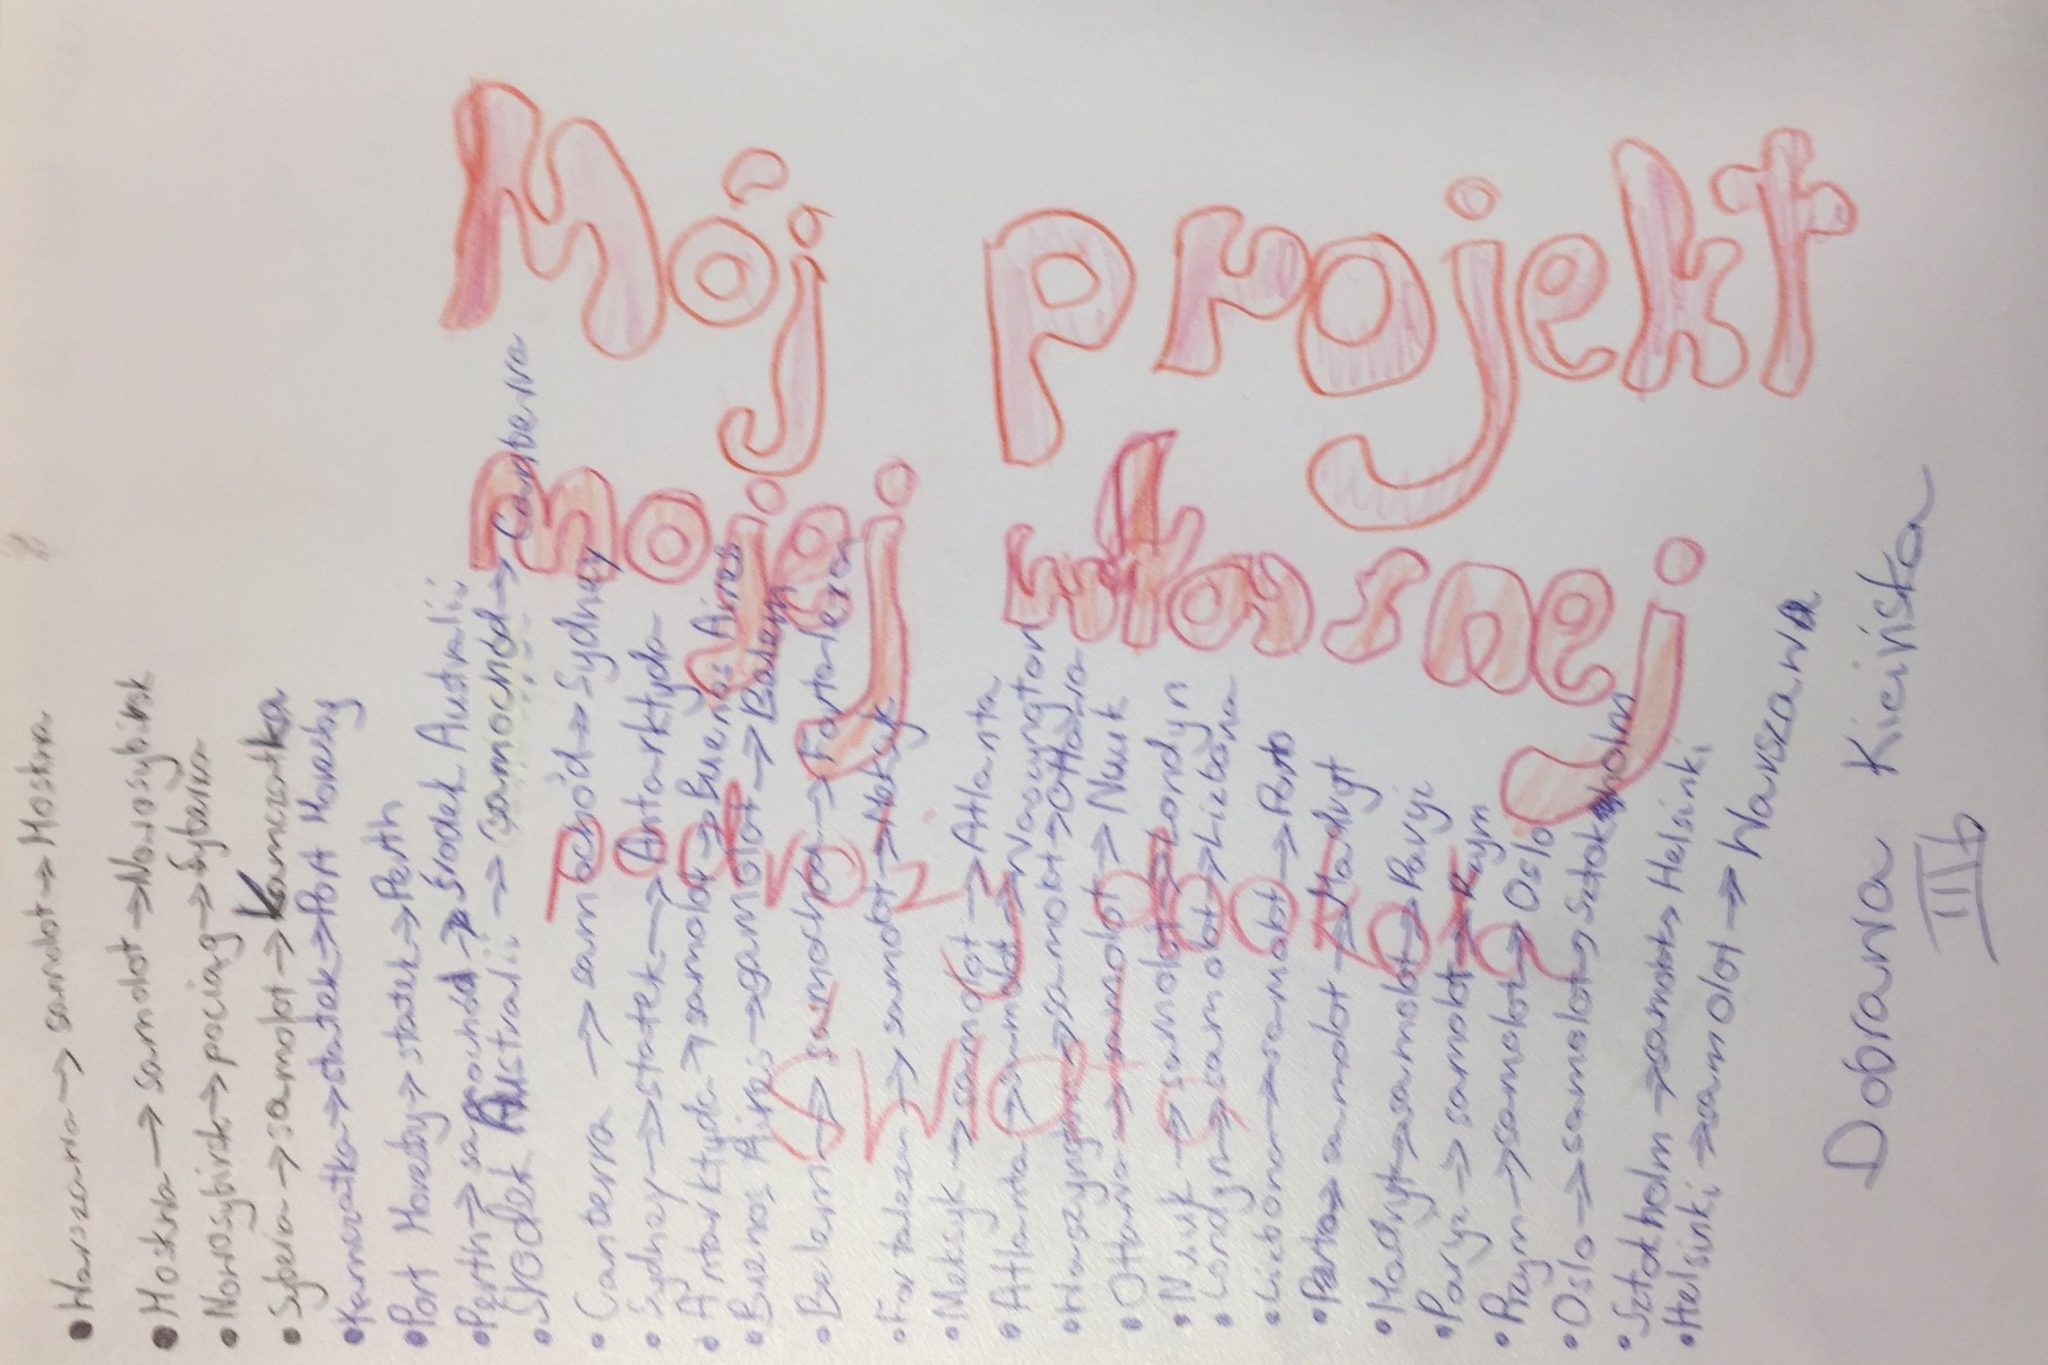 Mój projekt
mojej własnej
podróży dookoła
świata
• Warszawa → samolot → Moskwa
• Moskwa → samolot → Nowosybirsk
• Nowosybirsk → pociąg → Syberia
• Syberia → samolot → Kamczatka
• Kamczatka → statek → Port Moresby
• Port Moresby → statek → Perth
• Perth → samochód → Środek Australii
• Środek Australii → samochód → Canberra
• Canberra → samochód → Sydney
• Sydney → statek → Antarktyda
• Antarktyda → samolot → Buenos Aires
• Buenos Aires → samolot → Belem
• Belem → samochód → Fortaleza
• Fortaleza → samolot → Meksyk
• Meksyk → samolot → Atlanta
• Atlanta → samolot → Waszyngton
• Waszyngton → samolot → Ottawa
• Ottawa → samolot → Nuuk
• Nuuk → samolot → Londyn
• Londyn → samolot → Lizbona
• Lizbona → samolot → Porto
• Porto → samolot → Madryt
• Madryt → samolot → Paryż
• Paryż → samolot → Rzym
• Rzym → samolot → Oslo
• Oslo → samolot → Sztokholm
• Sztokholm → samolot → Helsinki
• Helsinki → samolot → Warszawa
Dobrawa Kicińska
III b